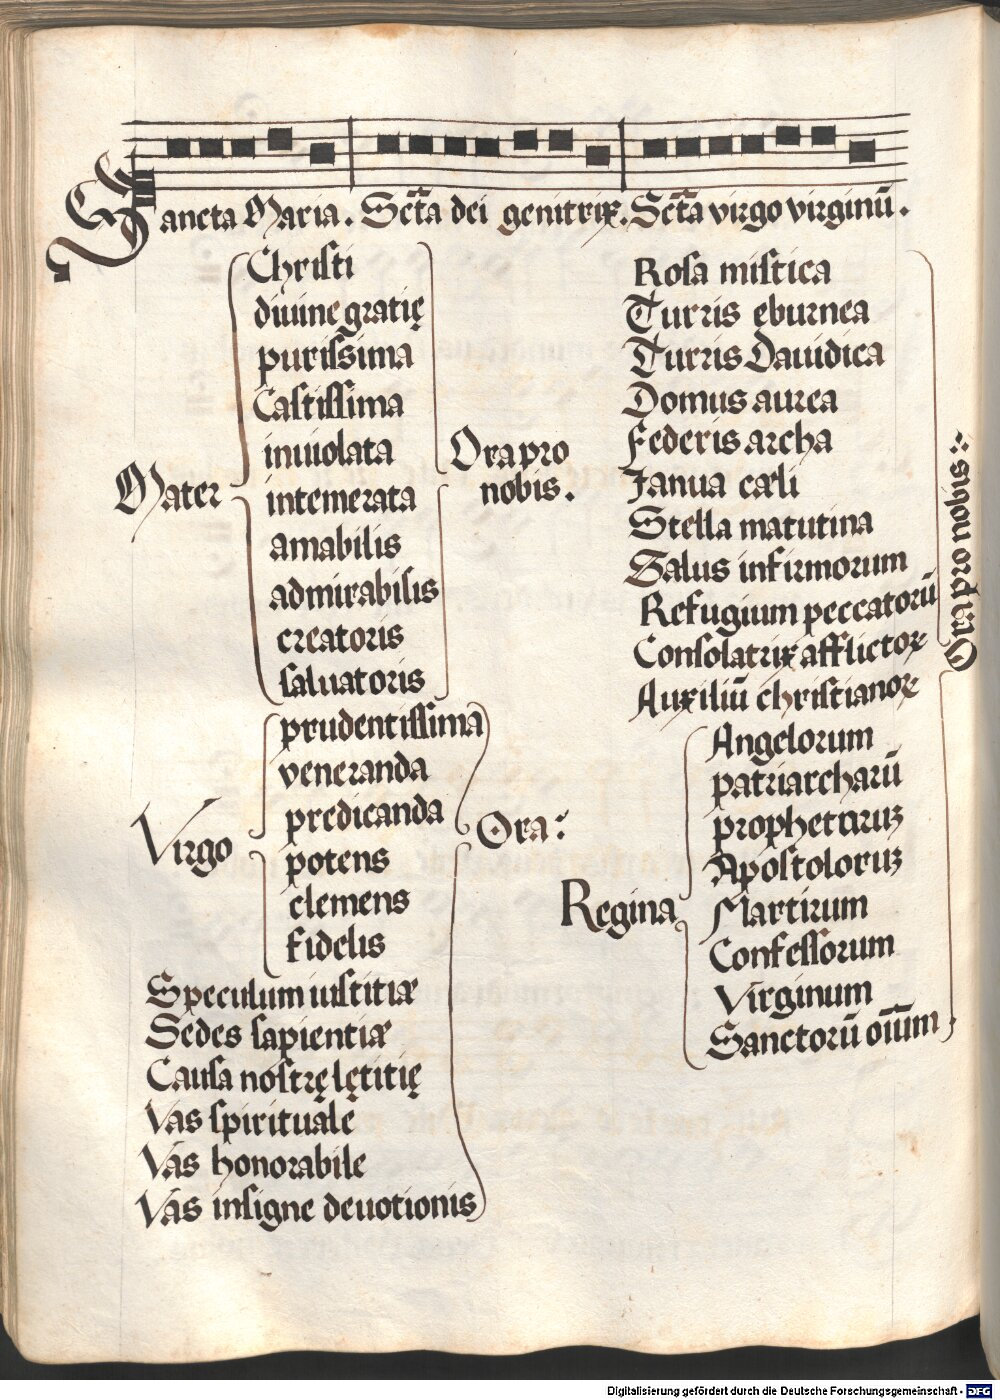 Sancta Maria. Scta dei genitrix. Scta virgo virginū.
Mater
Christi
diuine gratię
purissima
Castissima
inuiolata
intemerata
amabilis
admirabilis
creatoris
saluatoris
Ora pro
nobis.
Virgo
prudentissima
veneranda
predicanda
potens
clemens
fidelis
Ora:
Speculum iustitiæ
Sedes sapientiæ
Causa nostrę lętitię
Vas spirituale
Vas honorabile
Vas insigne deuotionis
Rosa mistica
Turris eburnea
Turris Dauidica
Domus aurea
Federis archa
Janua cæli
Stella matutina
Salus infirmorum
Refugium peccatorū
Consolatrix afflictoꝝ
Auxiliū christianoꝝ
Regina
Angelorum
patriarcharū
prophetaruꝫ
Apostoloruꝫ
Martirum
Confessorum
Virginum
Sanctorū oīum
Ora pro nobis
Digitalisierung gefördert durch die Deutsche Forschungsgemeinschaft - DFG